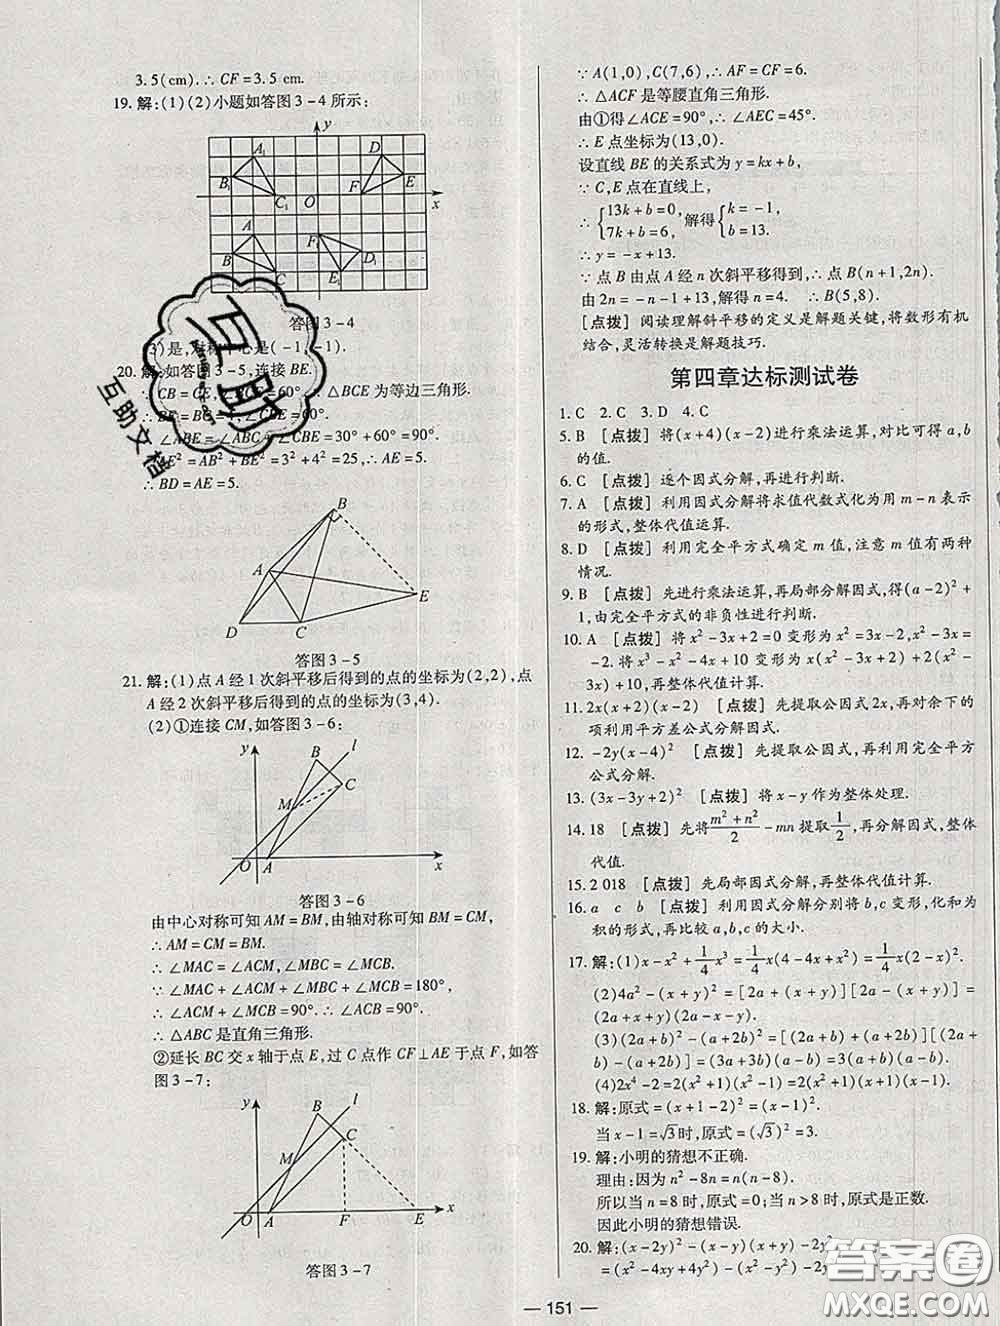 3.5(cm).∴ CF=3.5 cm.
19.解:(1)(2)小题如答图3-4所示:
y
A₁
D
B₁
F
E
C₁
O
x
A
F
B
D₁
C
E₁
答图3-4
3)是,对称中心是(-1,-1).
20.解:如答图3-5,连接BE.
CB=CE, BCE=60°. △BCE为等边三角形.
∴ BE=BC=4, CBE=60°.
∴ ∠ABE=∠ABC+∠CBE=30°+60°=90°.
AE²=AB²+BE²=3²+4²=25,∴ AE=5.
∴ BD=AE=5.
B
A
E
D
C
答图3-5
21.解:(1)点A经1次斜平移后得到的点的坐标为(2,2),点
A经2次斜平移后得到的点的坐标为(3,4).
(2)①连接CM,如答图3-6:
y
B
l
C
M
O
A
x
答图3-6
由中心对称可知AM=BM,由轴对称可知BM=CM,
∴ AM=CM=BM.
∴ ∠MAC=∠ACM,∠MBC=∠MCB.
∵ ∠MAC+∠ACM+∠MBC+∠MCB=180°,
∴ ∠ACM+∠MCB=90°.∴ ∠ACB=90°.
∴ △ABC是直角三角形.
②延长BC交x轴于点E,过C点作CF⊥AE于点F,如答
图3-7:
y
B
l
C
M
O
A
F
E
x
答图3-7
∵ A(1,0),C(7,6),∴ AF=CF=6.
∴ △ACF是等腰直角三角形.
由①得∠ACE=90°,∴ ∠AEC=45°.
∴ E点坐标为(13,0).
设直线BE的关系式为y=kx+b,
∵ C,E点在直线上,
∴ {13k+b=0, 7k+b=6, 解得{k=-1, b=13.
∴ y=-x+13.
∵ 点B由点A经n次斜平移得到,∴ 点B(n+1,2n).
由2n=-n-1+13,解得n=4. ∴ B(5,8).
[点拨] 阅读理解斜平移的定义是解题关键,将数形有机
结合,灵活转换是解题技巧.
第四章达标测试卷
1.C 2.C 3.D 4.C
5.B [点拨] 将(x+4)(x-2)进行乘法运算,对比可得a,b
的值.
6.C [点拨] 逐个因式分解,再进行判断.
7.A [点拨] 利用因式分解将求值代数式化为用m-n表示
的形式,整体代值运算.
8.D [点拨] 利用完全平方式确定m值,注意m值有两种
情况.
9.B [点拨] 先进行乘法运算,再局部分解因式,得(a-2)²+
1,由完全平方式的非负性进行判断.
10.A [点拨] 将x²-3x+2=0变形为x²=3x-2,x²-3x=
-2.将x³-x²-4x+10变形为x(x²-3x+2)+2(x²-
3x)+10,再整体代值计算.
11.2x(x+2)(x-2) [点拨] 先提取公因式2x,再对余下的
项利用平方差公式分解因式.
12.-2y(x-4)² [点拨] 先提取公因式,再利用完全平方
公式分解.
13.(3x-3y+2)² [点拨] 将x-y作为整体处理.
14.18 [点拨] 先将(m²+n²)/2-mn提取1/2,再分解因式,整体
代值.
15.2 018 [点拨] 先局部因式分解,再整体代值计算.
16.a c b [点拨] 利用因式分解分别将b,c变形,化和为
积的形式,再比较a,b,c的大小.
17.解:(1)x-x²+1/4x³=1/4x(4-4x+x²)=1/4x(2-x)².
(2)4a²-(x+y)²=[2a+(x+y)][2a-(x+y)]=
(2a+x+y)(2a-x-y).
(3)(2a+b)²-(a+2b)²=[(2a+b)+(a+2b)][(2a+
b)-(a+2b)]=(3a+3b)(a-b)=3(a+b)(a-b).
(4)2x⁴-2=2(x²+1)(x²-1)=2(x²+1)(x+1)(x-1).
18.解:原式=(x+1-2)²=(x-1)².
当x-1=√3时,原式=(√3)²=3.
19.解:小明的猜想不正确.
理由:因为n²-8n=n(n-8).
所以当n=8时,原式=0;当n>8时,原式是正数.
因此小明的猜想错误.
20.解:(x-2y)²-(x-y)(x+y)-2y²
=(x²-4xy+4y²)-(x²-y²)-2y²
— 151 —
互助
互助文档
答案卷
MXQE.COM